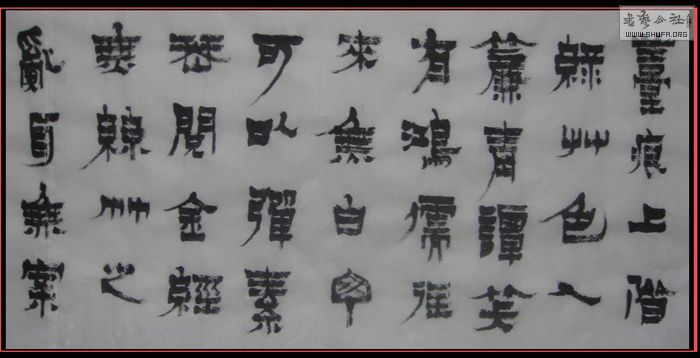 臺痕上階
綠艸色入
簾青譚笑
有鴻儒往
來無白丁
可以彈素
琴閱金經
無絲竹之
亂耳無案
书艺公社
WWW.SHUFA.ORG